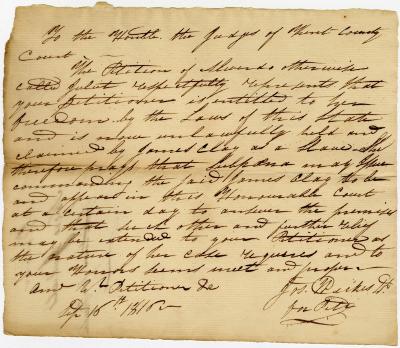 To the Honble. the Judges of Kent County
Court
The Petition of otherwise
called Juliet respectfully represents that
your Petitioner is entitled to her
freedom by the Laws of this State
and is now unlawfully held and
claimed by James Clay as a Slave. She
therefore prays that Subpoena may issue
commanding the said James Clay to be
and appear in this Honourable Court
at a certain day to answer the premises
and that such other and further relief
may be extended to your Petitioner as
the nature of her case requires and to
your Honors seems meet and proper
And yr. Petitioner &c
Jos.
for Petr
Ap 16th 1816